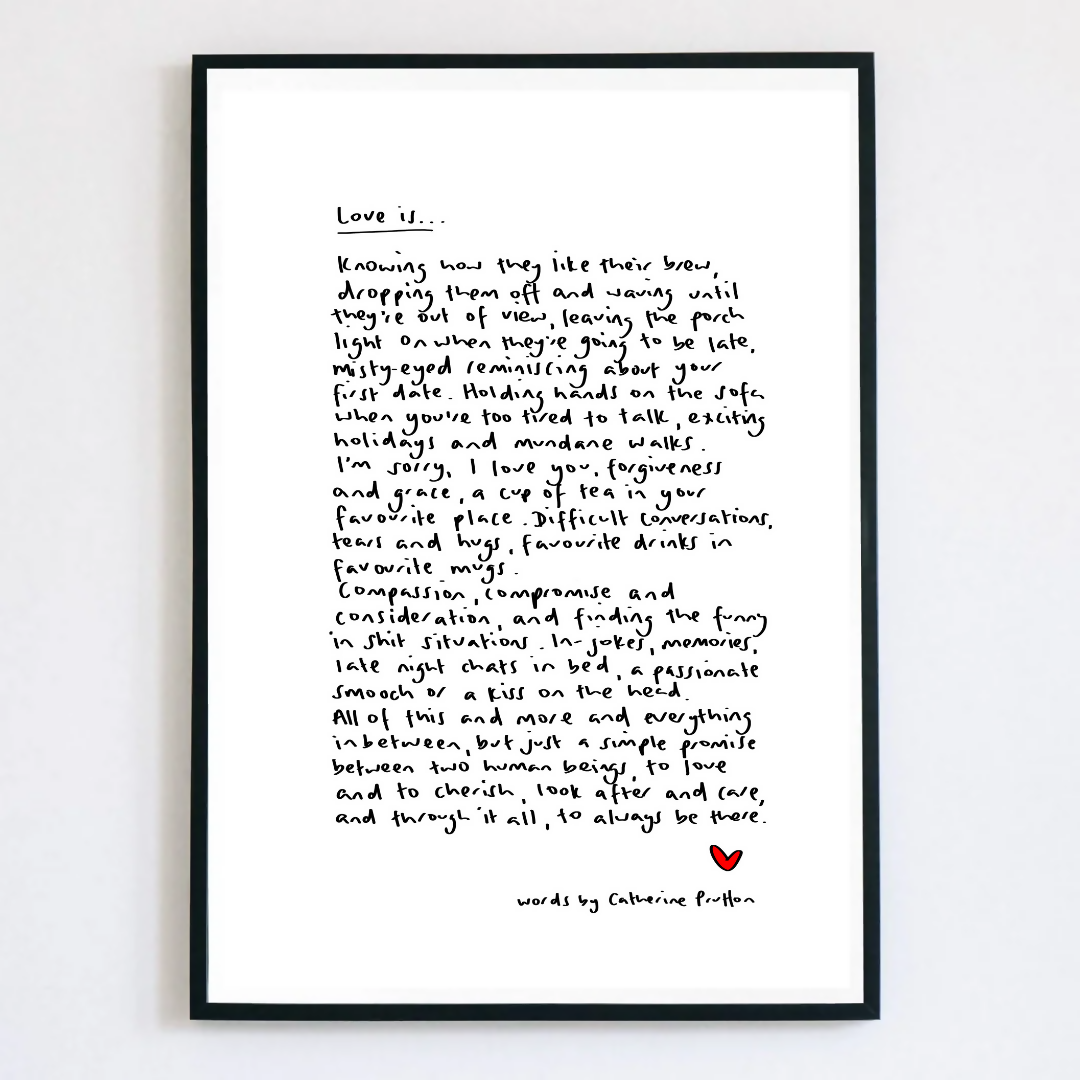 Love is...
Knowing how they like their brew,
dropping them off and waving until
they're out of view, leaving the porch
light on when they're going to be late,
misty-eyed reminiscing about your
first date. Holding hands on the sofa
when you're too tired to talk, exciting
holidays and mundane walks.
I'm sorry, I love you, forgiveness
and grace, a cup of tea in your
favourite place. Difficult conversations,
tears and hugs, favourite drinks in
favourite mugs.
Compassion, compromise and
consideration, and finding the funny
in shit situations. In-jokes, memories,
late night chats in bed, a passionate
smooch or a kiss on the head.
All of this and more and everything
inbetween, but just a simple promise
between two human beings, to love
and to cherish, look after and care,
and through it all, to always be there.
words by Catherine Prutton